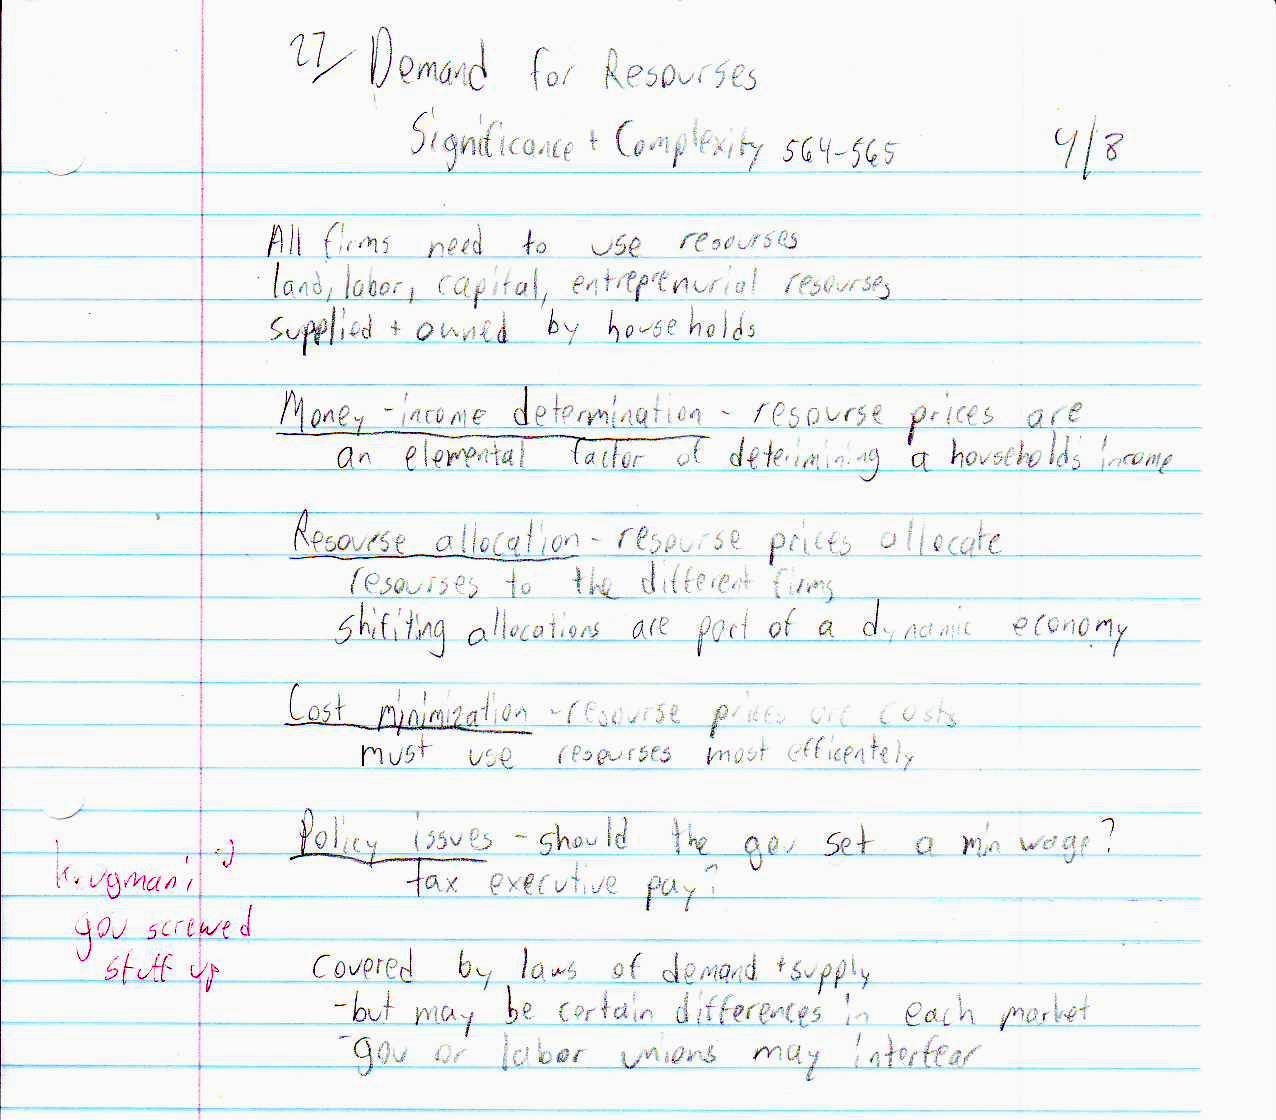 27/ Demand for Resourses
Significance + Complexity 564-565
4/8
All firms need to use resourses
land, labor, capital, entreprenurial resourses
supplied + owned by households
Money-income determination - resourse prices are
an elemental factor of deterimining a households income
Resourse allocation - resourse prices allocate
resourses to the different firms
shifiting allocations are part of a dynamic economy
Cost minimization - resourse prices are costs
must use resourses most efficentely
Policy issues - should the gov set a min wage?
tax executive pay?
krugman:
gov screwed
stuff up
covered by laws of demand + supply
-but may be certain differences in each market
-gov or labor unions may interfear